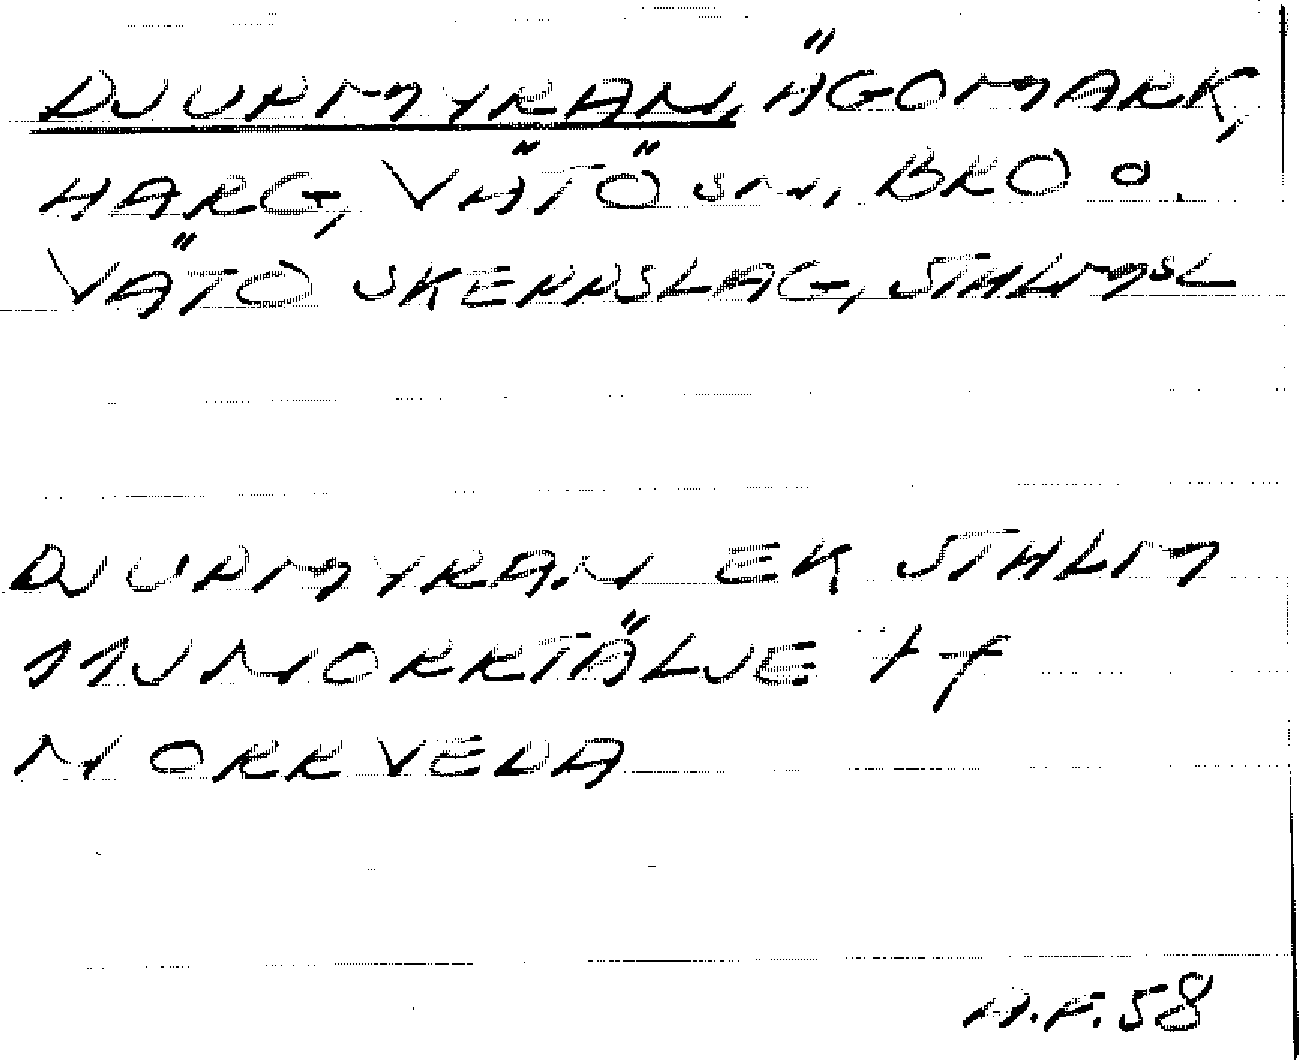 DJURMYRAN, ÄGOMARK,
HARG, VÄTÖ SN, BRO O.
VÄTÖ SKEPPSLAG, STHLMSL
DJURMYRAN EK STHLM
11J NORRTÄLJE
NORRVEDA
58